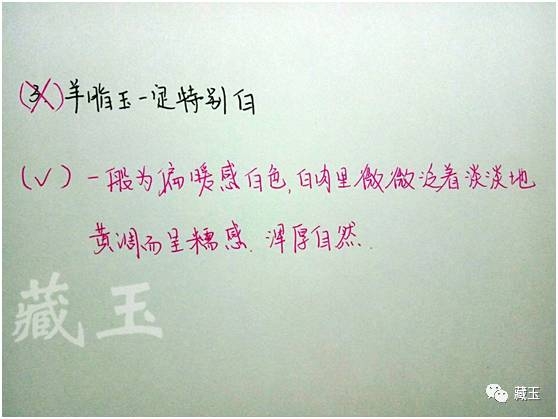 (3.)羊脂玉一定特别白
(√)一般为偏暖感白色,白肉里微微泛着淡淡地
黄调而呈糯感.浑厚自然.
藏玉
藏玉